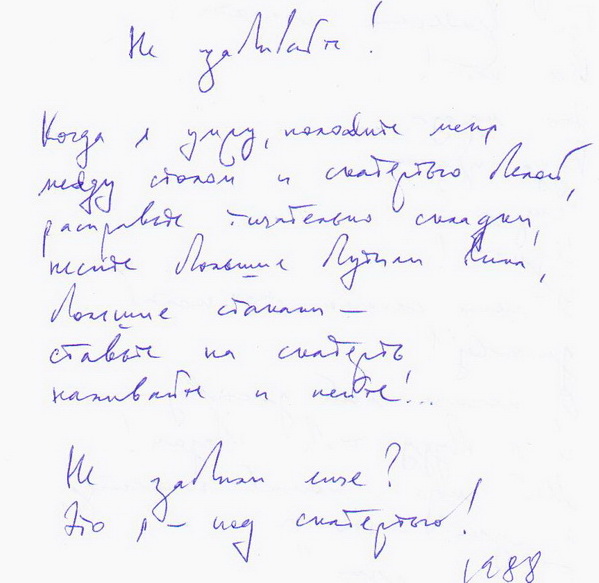 Не забывайте!
Когда я умру, положите меня
между столом и скатертью белой,
расправьте тщательно складки,
несите большие бутыли вина,
большие стаканы —
ставьте на скатерть,
наливайте и пейте!...
Не забыли еще?
Это я — под скатертью!
1988